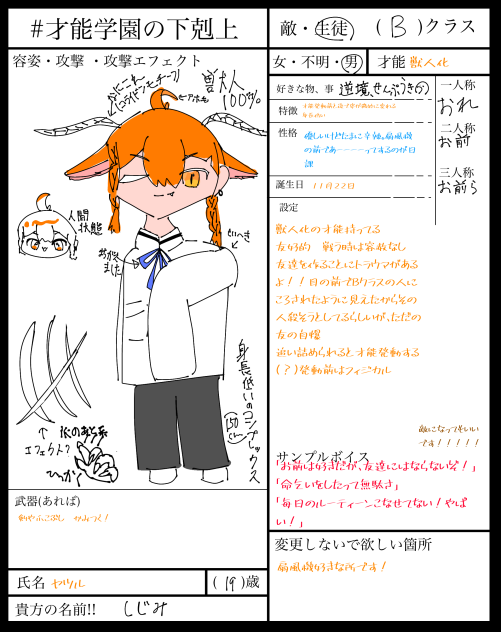 #才能学園の下剋上
敵・生徒 (B)クラス
容姿・攻撃・攻撃エフェクト
女・不明・男
才能 獣人化
獣人
100%
人間
状態
身長低いのコンプレックス
150cm
↑
エフェクト?
武器(あれば)
氏名 ヤツル
(19)歳
貴方の名前!! しじみ
好きな物、事 逆境、せんぷうきの
特徴
性格
誕生日 11月22日
一人称
おれ
二人称
お前
三人称
お前ら
設定
獣人化の才能持ってる
友好的 戦う時は容赦なし
友達を作ることにトラウマがある
よ!!目の前でBクラスの人に
ころされたように見えたからその
人殺そうとしてるらしいが、ただの
友の自爆
追い詰められると才能発動する
(?)発動前はフィジカル
敵になってもいい
です!!!!!
サンプルボイス
「お前は好きだが、友達にはならないぞ!」
「命乞いをしたって無駄さ」
「毎日のルーティーンこなせてない!やば
い!」
変更しないで欲しい箇所
扇風機好きな所です!